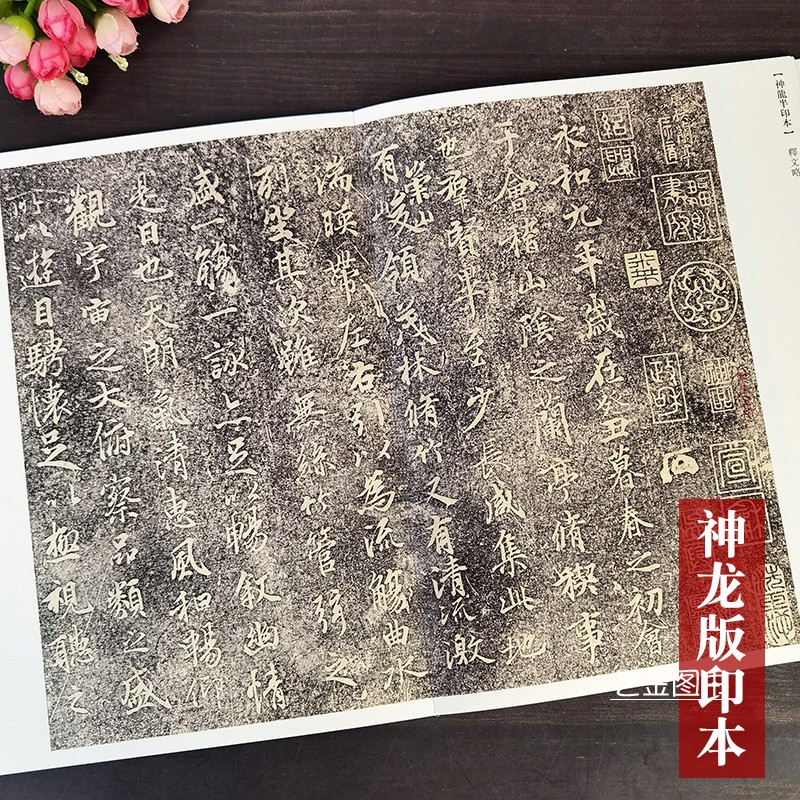 【神龍半印本】 釋文略
永和九年歲在癸丑暮春之初會
于會稽山陰之蘭亭脩稧事
也羣賢畢至少長咸集此地
有崇山峻領茂林脩竹又有清流激
湍暎帶左右引以為流觴曲水
列坐其次雖無絲竹管弦之
盛一觴一詠亦足以暢敘幽情
是日也天朗氣清惠風和暢仰
觀宇宙之大俯察品類之盛
所以遊目騁懷足以極視聽之
神龙版印本
艺金图